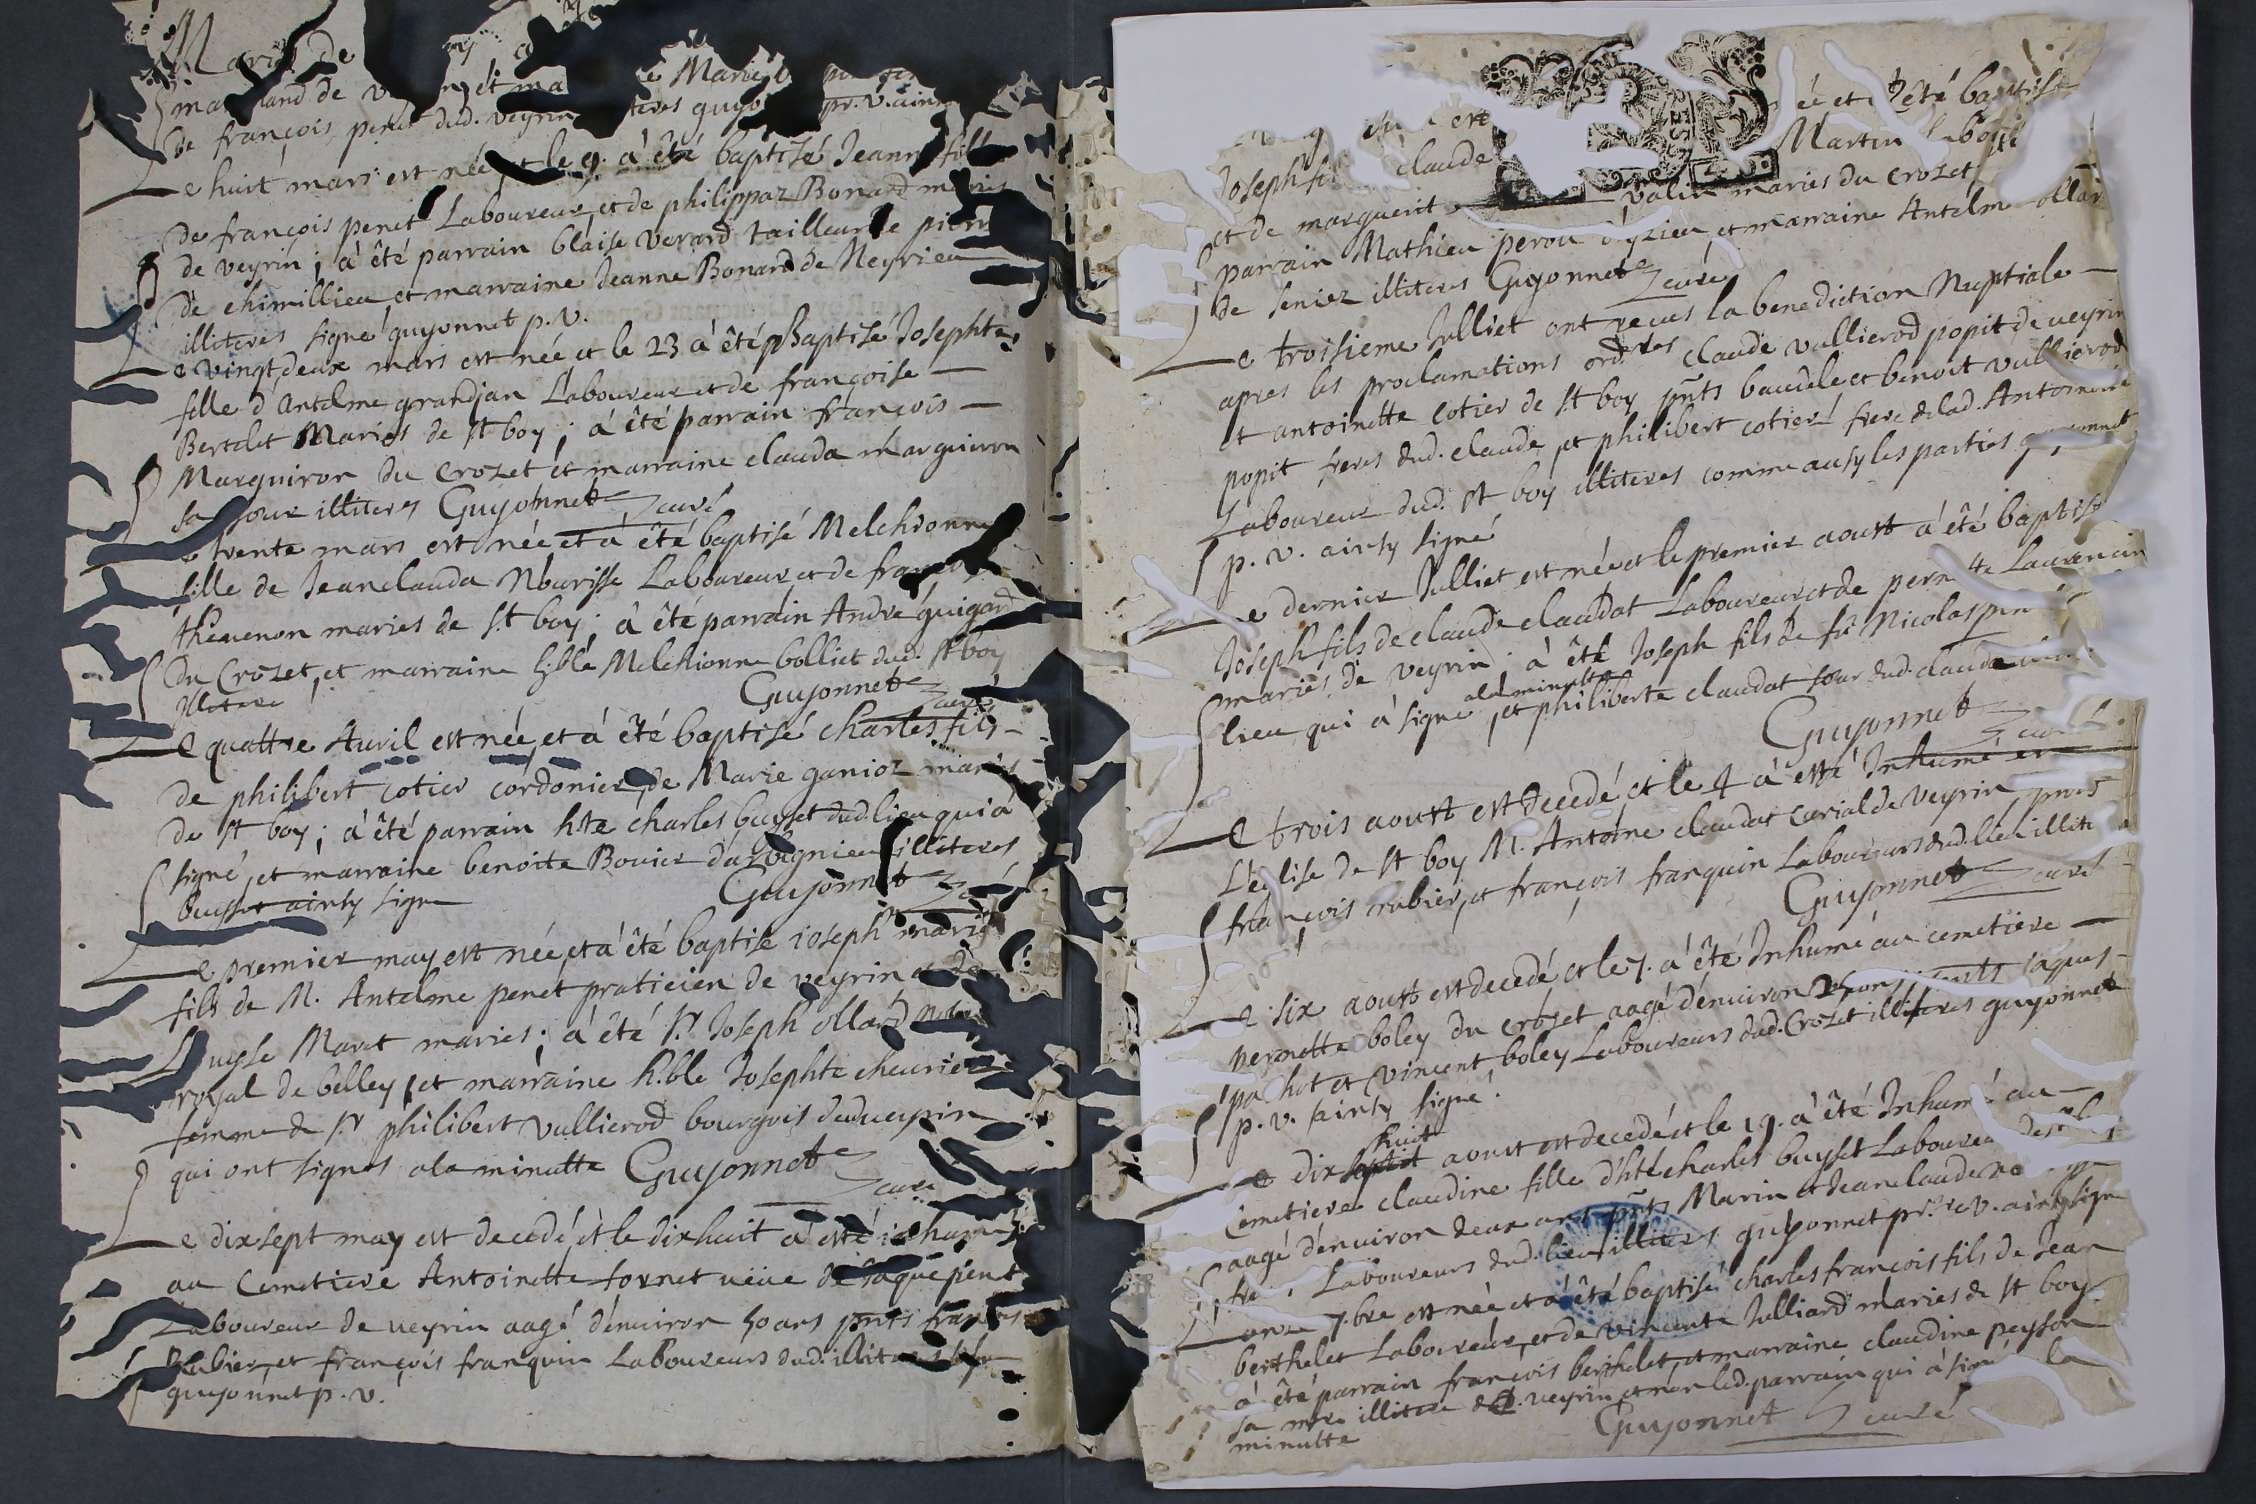 Maries de
marchand de et Marie
de françois penet dud. veyrin guyo pr. v. ainsy
Le huit mars est née et le 9. à été baptisé Jeanne fille
de françois penet Laboureur, et de philippaz Bonard mariés
de veyrin ; à été parrain blaise verard tailleur de pierre
de chimillieu et marraine Jeanne Bonard de Neyrieu
illiteres signé guyonnet p. v.
Le vingt deux mars est née et le 23 à été Baptisé Josephte
fille d'Antelme grandjan Laboureur et de françoise
Bertelet Mariés de st boy ; à été parrain françois
Marguiron du Crozet et marraine clauda marguiron
sa sour illiteres Guyonnet curé
Le trente mars est née et à été baptisé Melchionne
fille de Jeanclauda Nourisse Laboureur et de
thevenon maries de st boy ; à été parrain André guigard
du Crozet, et marraine h.ble Melchionne bolliet dud. st boy
illetere Guyonnet curé
Le quattre Avril est née, et à été baptisé charles fils
de philibert cotier cordonier, de Marie ganioz mariés
de st boy ; à été parrain hte charles buysset dud. lieu qui à
signé, et marraine benoite Bouier d'arbignieu illiteres
buysset ainsy signe Guyonnet curé
Le premier may est née, et à été baptisé ioseph marie
fils de M. Antelme penet praticien de veyrin et de
Louyse Maret maries ; à été sr. Joseph ollard
royal de belley, et marraine h.ble Josephte cheurier
femme de sr philibert vullierod bourgois dud veyrin
qui ont signes a la minutte Guyonnet curé
Le dix sept may est decedé, et le dix huit à esté inhumé
au Cemetiere Antoinette fornet veüe de Jaque penet
Laboureur de veyrin aagé d'environ 50 ans pnts françois
Rubier, et françois franquin Laboureurs dud. illiteres
guyonnet p. v.
née et à été baptisé
Joseph fils claude Martin Laboureur
et de marguerite valin maries du crozet,
parrain Mathieu perou d'yzieu, et marraine Antelme ollard
de seniez illiteres Guyonnet curé
Le troisieme Julliet ont reçus la benediction Nuptiale
apres les proclamations ord.res claude vullierod popit de veyrin
et antoinette cotier de st boy pnts baudele et benoit vullierod
popit freres dud. claude, et philibert cotier frere de lad. Antoinette
Laboureur dud. st boy illiteres comme aussy les parties guyonnet
p. v. ainsy signé
Le dernier Julliet est née et le premier aoust à été baptisé
Joseph fils de claude claudat Laboureur et de pernette Laurencin
maries de veyrin ; à été Joseph fils de fû Nicolas penet
a la minutte
lieu qui à signé, et philiberte claudat sour dud. claude
Guyonnet curé
Le trois aoust est decedé, et le 4 à esté Inhumé en
L'eglise de st boy M. Antoine claudat Curial de Veyrin, pnts
françois rubier, et françois franquin Laboureurs dud. lieu illiteres
Guyonnet curé
Le six aoust est decedé et le 7. à été Inhumé au cemetiere
pernette boley du crozet aagé d'environ ans pnts Jaques
pachot et vincent boley Laboureurs dud. Crozet illiteres guyonnet
p. v. ainsy signé.
huit
Le dix septiet aoust est decedé et le 19. à été Inhumé au
Cemetiere claudine fille d'hte charles buysset Laboureur de st boy
aagé d'environ deux ans pnts Marin et Jeanclaude
Laboureurs dud. lieu illiteres guyonnet pr. v. ainsy signe
Le onze 7.bre est née et à été baptisé charles françois fils de Jean
berthelet Laboureur, et de vincente Julliard maries de st boy
à été parrain françois berthelet, et marraine claudine peysson
sa mere illitere de veyrin et non led. parrain qui à signé a la
minutte Guyonnet curé